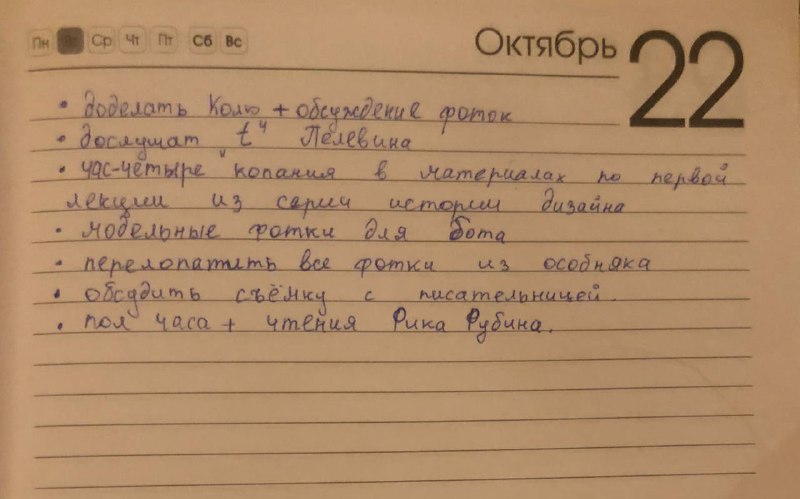 Пн Вт Ср Чт Пт Сб Вс
Октябрь 22
• доделать Колю + обсуждение фоток
• дослушат Пелевина
• час-четыре копания в материалах по первой
лекции из серии истории дизайна
• модельные фотки для бота
• перелопатить все фотки из особняка
• обсудить съёмку с писательницей.
• пол часа + чтения Рика Рубина.